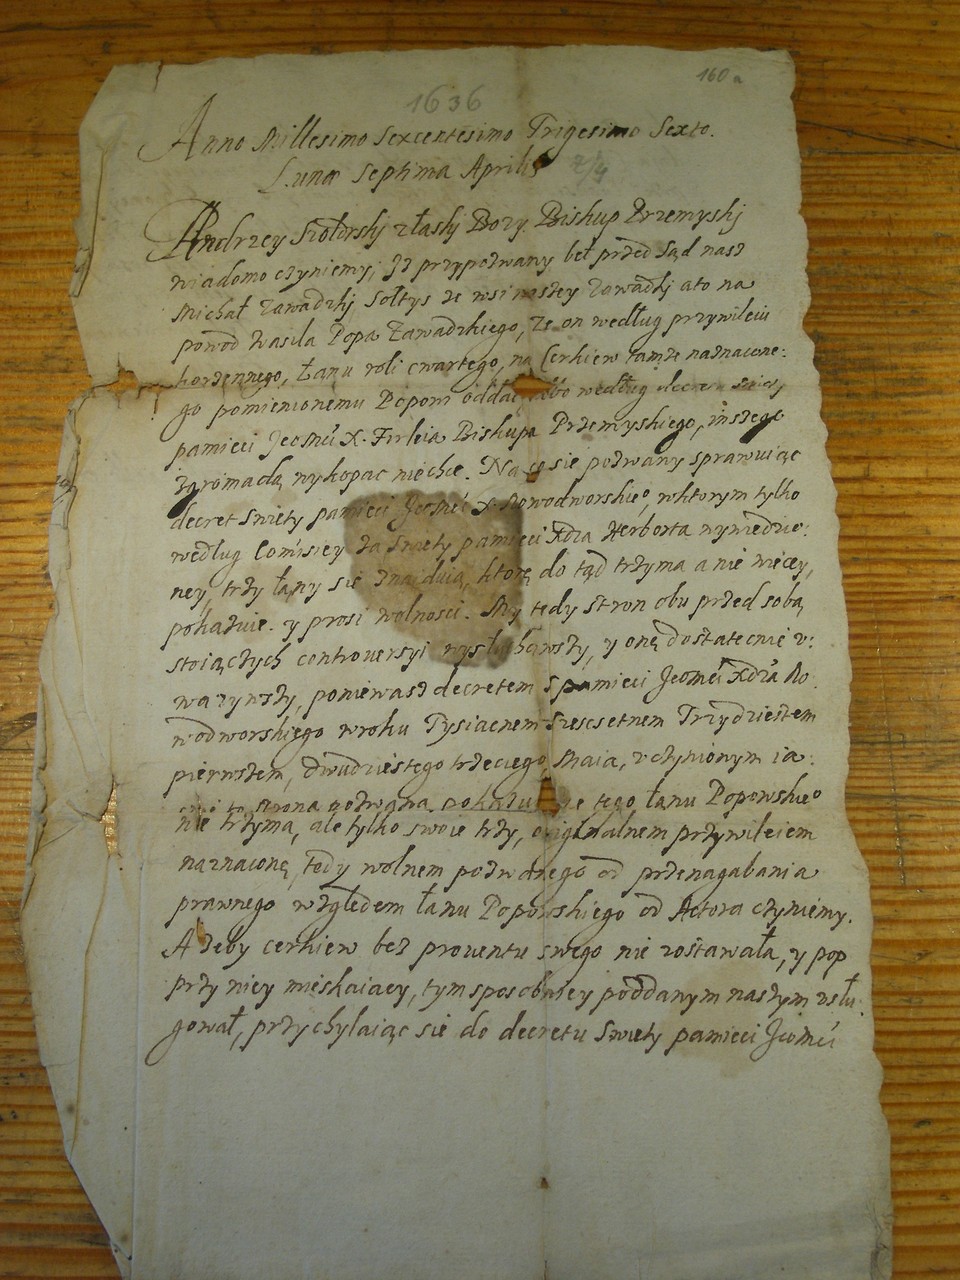 160a
1636
Anno Millesimo Sexcentesimo Trigesimo Sexto.
Lunæ Septima Aprilis 7/4
Andrzey Szołdrskj z łaskj Bozy Biskup Przemyskj
wiadomo czyniemy, Jz przypozwany beł przed Sąd nasz
Michał Zawadzkj Sołtys ze wsi naszey Zawadkj a to na
powod Wasila Popa Zawadzkiego, ze on według przywileiu
korzennego, Łanu roli czwartego, na Cerkiew tamze naznaczone:
go pomienionemu Popowi oddać, albo według decretu swięty
pamieci Jeomći X. Firleia Biskupa Przemyskiego, inszego
z gromadą wykopac niechce. Na co sie pozwany sprawuiąc
decret Swięty pamieci Jeomći X. Nowodworskieo w ktorym tylko
według Comisiey za Swięty pamięci Xdza Herborta wywiedzio:
ney, trzy łany sie znaiduią, ktorę do tąd trzyma a nie więcey,
pokazuie. y prosi wolnosci. My tedy stron obu przed sobą
stoiączych controuersyi wysłuchawszy, y onę dostatecznie v:
wazywszy, poniewasz decretem S pamieci Jeomći Xdza No:
wodworskiego w roku Tysiącnem Szescsetnem Trzydziestem
pierwszem, dwudziestego trzeciego Maia, vczynionym ia:
śnie to strona pozwana pokazuie ze tego łanu Popowskieo
nie trzyma, ale tylko swoie trzy, originalnem przywileiem
naznaczonę, tedy wolnem pozwanego od przenagabania
prawnego względem łanu Popowskiego od Actora czyniemy.
A zeby cerkiew bez prouentu swego nie zostawała, y pop
przy niey mieskaiacy, tym sposobniey poddanym naszym vsłu:
gował, przychylaiąc sie do decretu Swięty pamieci Jeomći